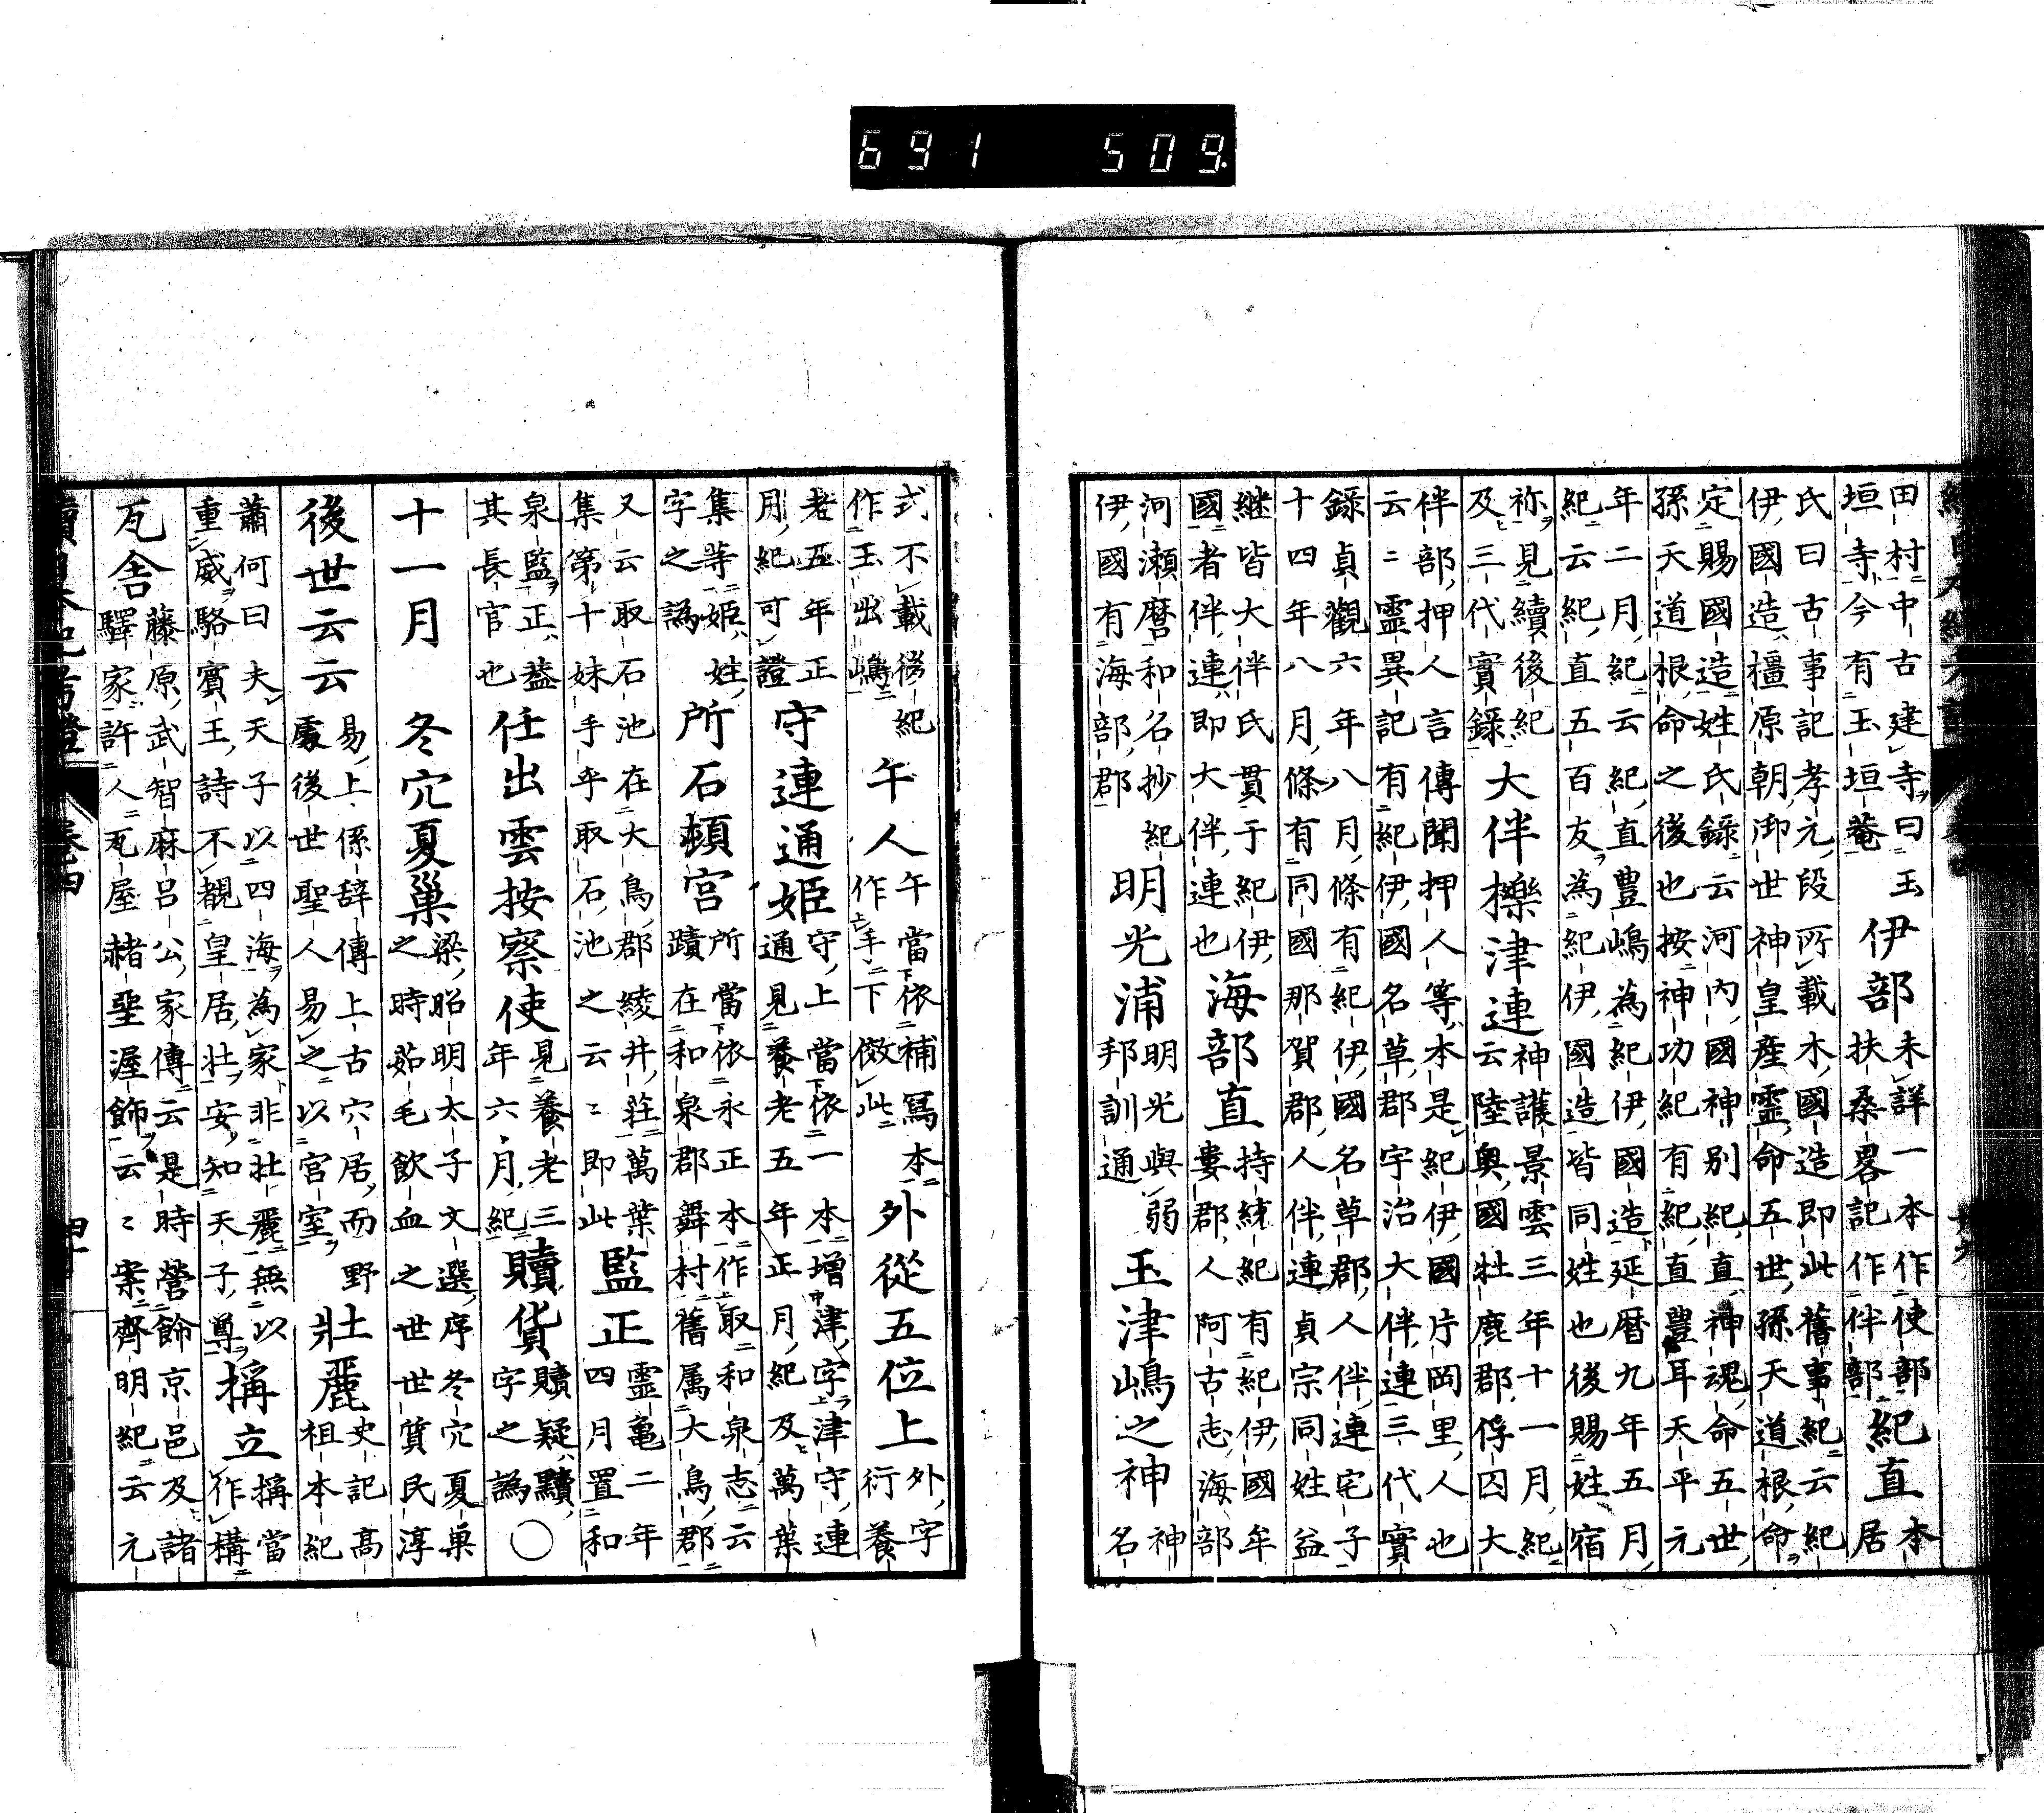 691 509
田村中古建寺曰玉
垣寺今有玉垣菴
伊部
未詳一本作作使部
扶桑畧記作伴部
紀直
本
居
氏曰古事記孝元段所載木國造即此舊事紀云紀
伊國造橿原朝御世神皇産靈命五世孫天道根命
定賜國造姓氏録云河内國神別紀直神魂命五世
孫天道根命之後也按神功紀有紀直豊耳天平元
年二月紀云紀直豊嶋為紀伊國造延暦九年五月
紀云紀直五百友為紀伊國造皆同姓也後賜姓宿
祢見續後紀
及三代實録
大伴櫟津連
神護景雲三年十一月紀
云陸奥國牡鹿郡俘囚大
伴部押人言傳聞押人等本是紀伊國片岡里人也
云〻靈異記有紀伊國名草郡宇治大伴連三代實
録貞觀六年八月條有紀伊國名草郡人伴連宅子
十四年八月條有同國那賀郡人伴連貞宗同姓益
継皆大伴氏貫于紀伊
國者伴連即大伴連也
海部直
持統紀有紀伊國牟
婁郡人阿古志海部
河瀬麿和名抄紀
伊國有海部郡
明光浦
明光與弱
邦訓通
玉津嶋之神
神
名
式不載後紀
作玉出嶋
午人
午當依補冩本
作手下倣此
外從五位上
外字
衍養
老五年正
月紀可證
守連通姫
守上當依一本增津字津守連
通見養老五年正月紀及萬葉
集等姫姓
字之譌
所石頓宮
所當依永正本作取和泉志云
蹟在和泉郡舞村舊属大鳥郡
又云取石池在大鳥郡綾井莊萬葉
集第十妹手乎取石池之云〻即此
監正
靈亀二年
四月置和
泉監正盖
其長官也
任出雲按察使
見養老三
年六月紀
贖貨
贖疑黷
字之譌
○
十一月
冬穴夏巢
梁昭明太子文選序冬穴夏巢
之時茹毛飲血之世世質民淳
後世云云
易上係辞傳上古穴居而野
處後世聖人易之以宮室
壯麗
史記髙
祖本紀
蕭何曰夫天子以四海為家非壯麗無以
重威駱賓王詩不覩皇居壮安知天子尊
稱立
稱當
作構
瓦舎
藤原武智麻呂公家傳云是時營餝京邑及諸
驛家許人瓦屋赭堊渥飾云〻案齊明紀云元